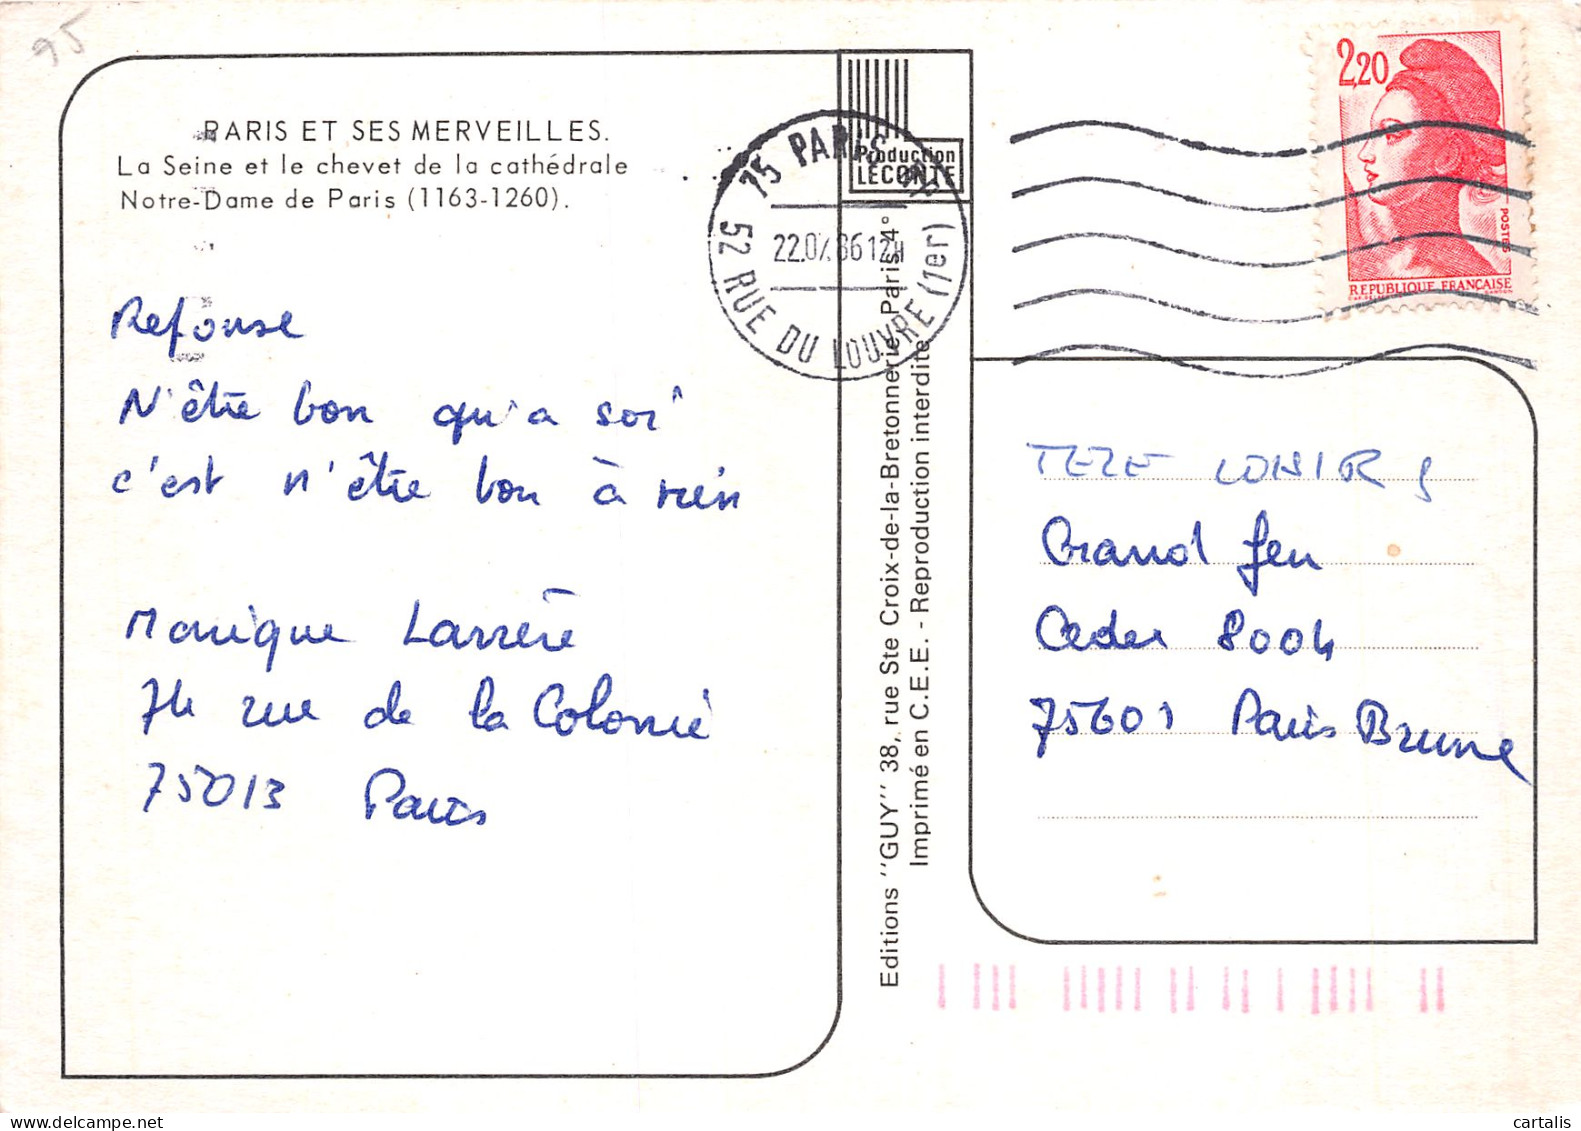 95
PARIS ET SES MERVEILLES.
La Seine et le chevet de la cathédrale
Notre-Dame de Paris (1163-1260).
Réponse
N'être bon qu'a soi
c'est n'être bon à rien
Monique Larrère
74 rue de la Colonie
75013 Paris
Production
LECONTE
75 PARIS
22.07.86 12H
52 RUE DU LOUVRE (1er)
Editions "GUY" 38, rue Ste Croix-de-la-Bretonnerie, Paris 4°
Imprimé en C.E.E. - Reproduction interdite
2,20
POSTES
REPUBLIQUE FRANÇAISE
TELE LOISIRS
Grand Jeu
Cedex 8004
75601 Paris Brune
cartalis
www.delcampe.net